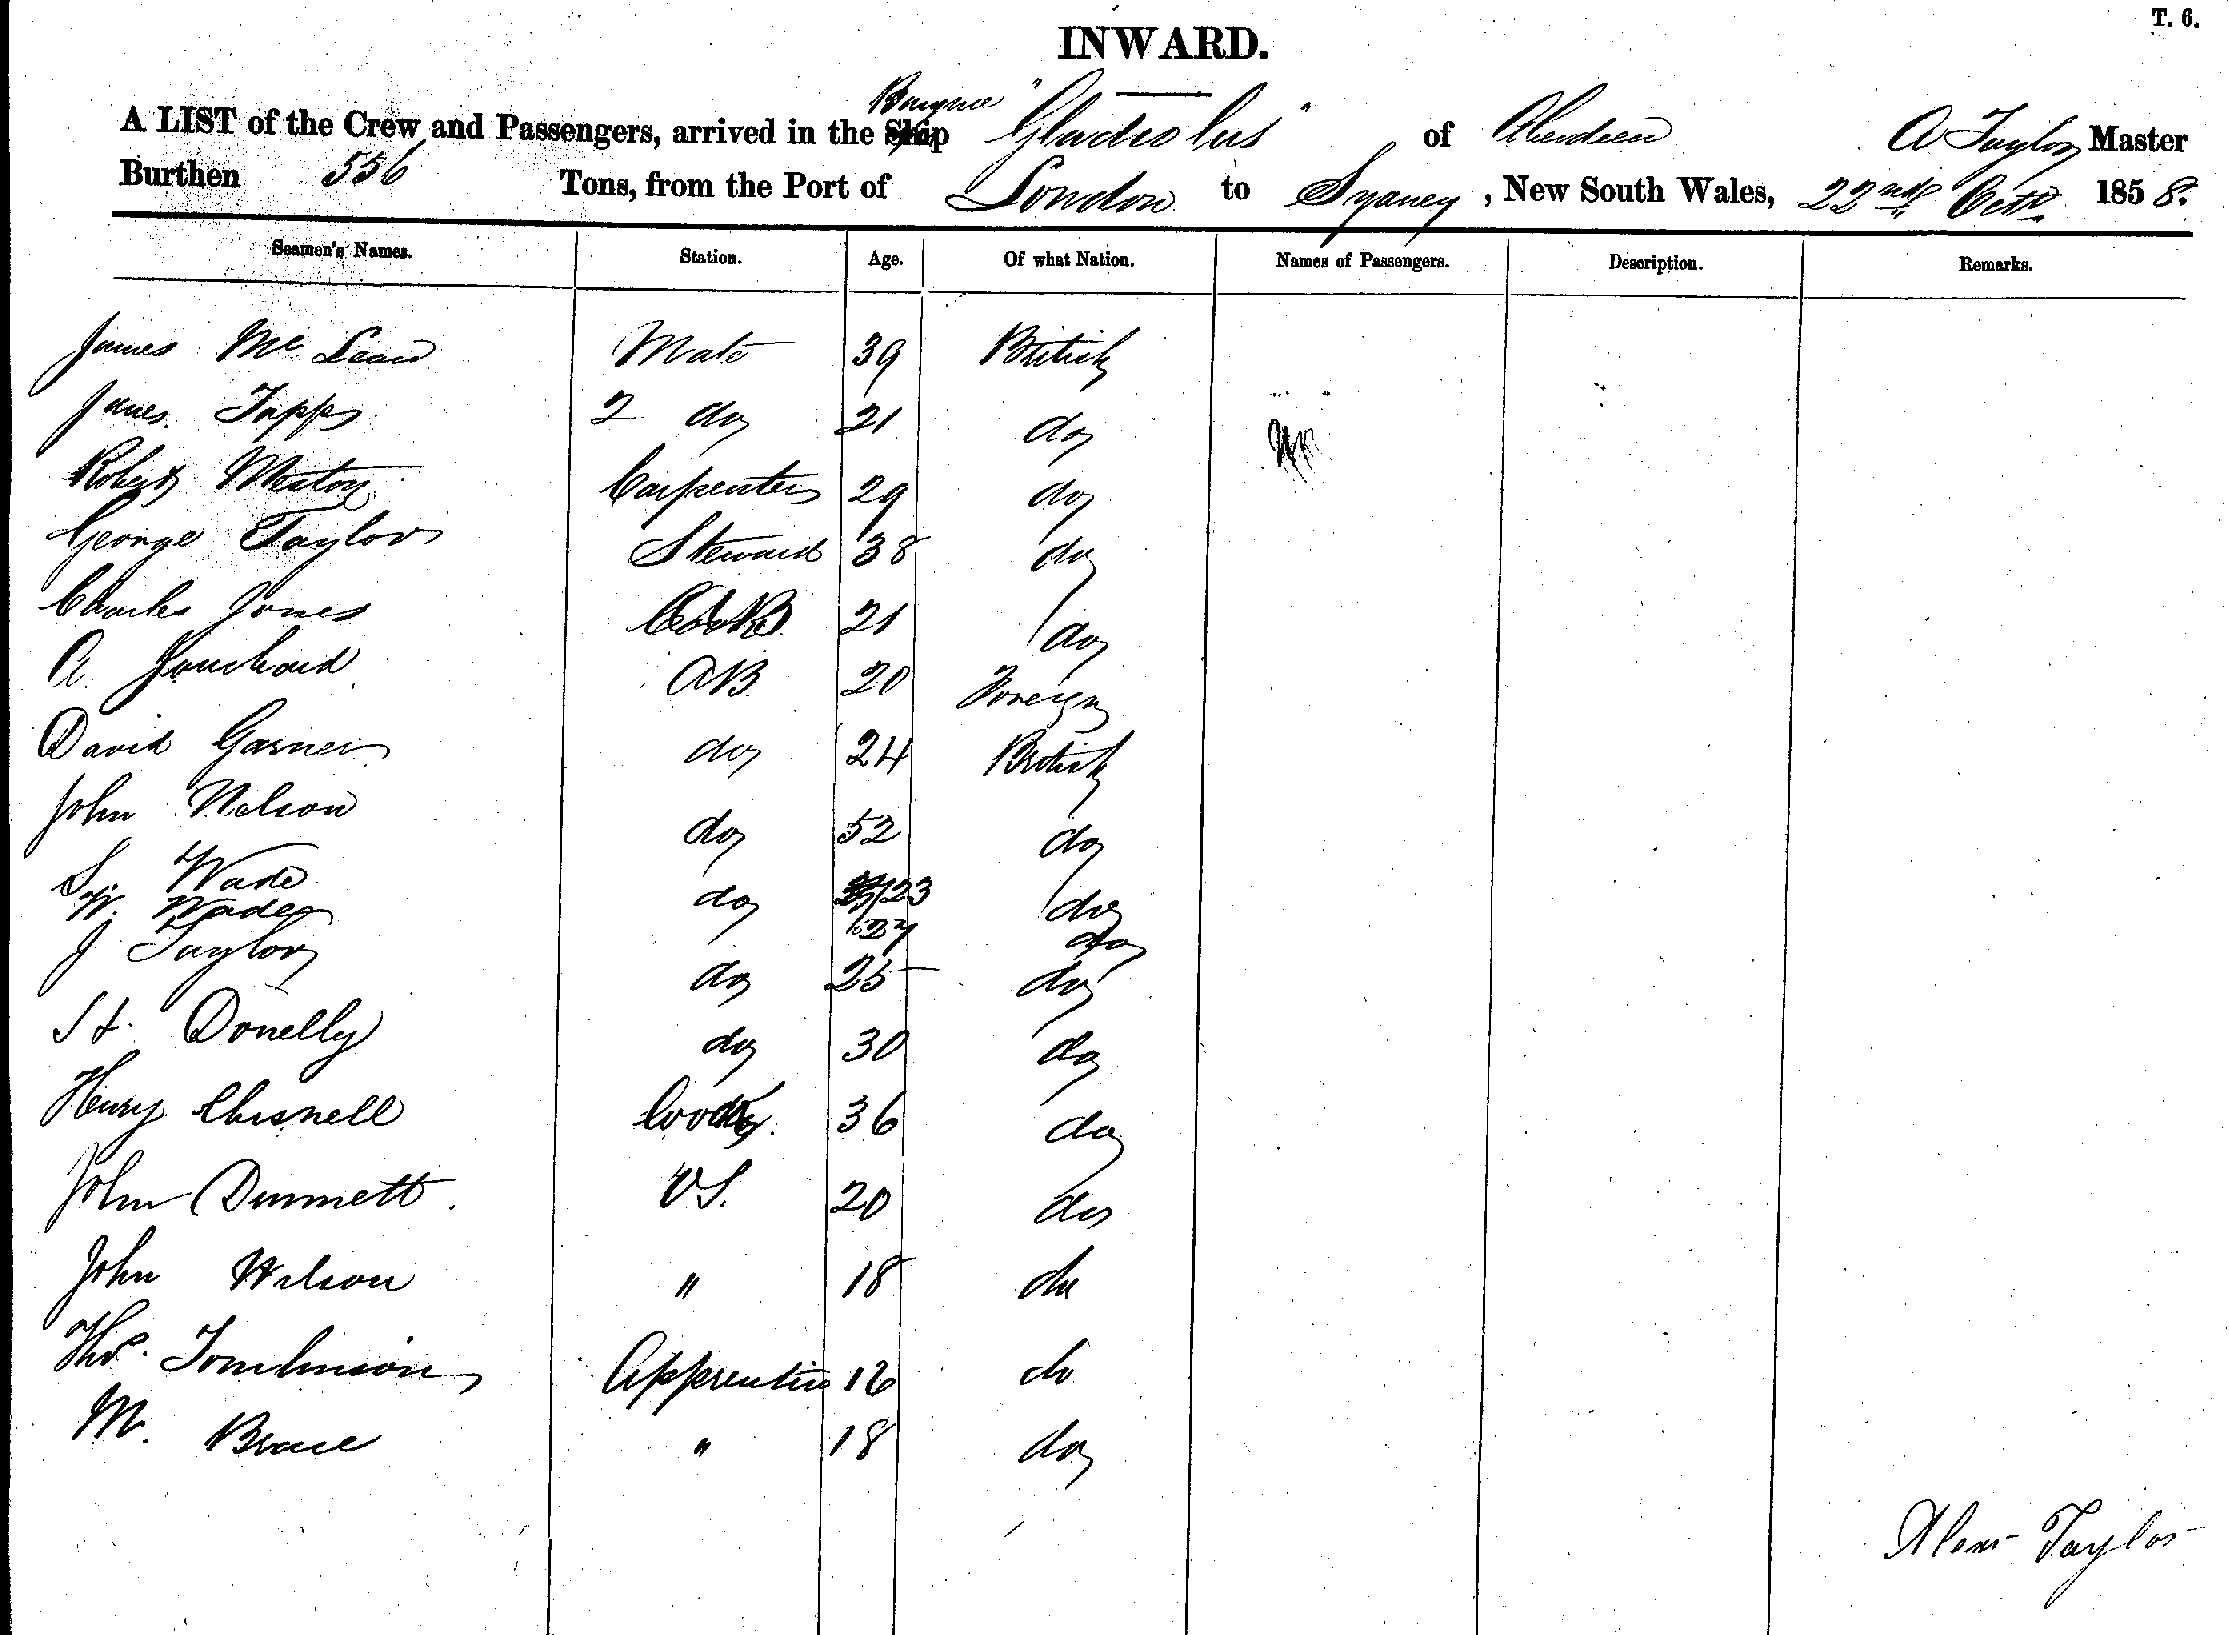 T. 6.
INWARD.
Barque
A LIST of the Crew and Passengers, arrived in the Ship "Gladiolus" of Aberdeen A Taylor Master
Burthen 556 Tons, from the Port of London to Sydney, New South Wales, 22nd Octr 1858.
Seamen's Names. Station. Age. Of what Nation. Names of Passengers. Description. Remarks.
James Mc Lean Mate 39 British
James Tapp 2 do 21 do
Robert Meston Carpenter 29 do
George Taylor Steward 38 do
Charles Jones 21 do
A 20 Foreign
AB
David Garner do 24 British
John Nelson do 52 do
S Wade do 23 do
W. Wade 27 do
J Taylor do 25 do
Donelly do 30 do
Henry Chisnell Cook 36 do
John Dunnett O.S. 20 do
John Wilson " 18 do
Thos. Tomlinson Apprentice 16 do
M. Brace " 18 do
Alexr Taylor